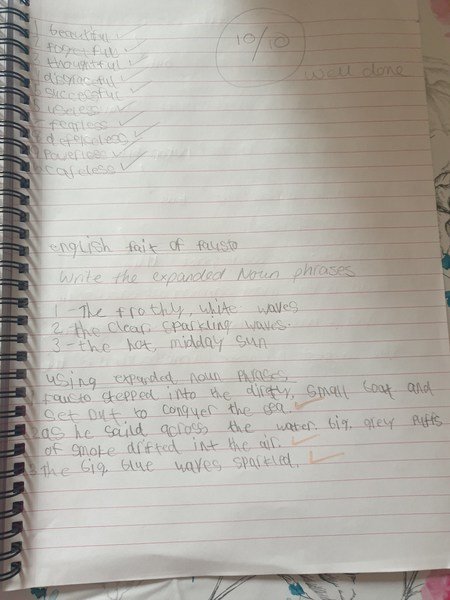 1 beautiful
2 forgetful
3 thoughtful
4 disgraceful
5 successful
6 useless
7 fearless
8 defenceless
9 Powerless
10 careless
10/10
well done
english fait of fausto
Write the expanded Noun phrases
1 - The frothly, white waves
2. the clear sparkling waves.
3 - the hot, midday sun
using expanded noun phrases
1 Fausto stepped into the dirty, small boat and
set out to conquer the sea.
2 as he saild across the water, big, grey Puffs
of smoke drifted int the air.
3 the big blue waves sparkled.